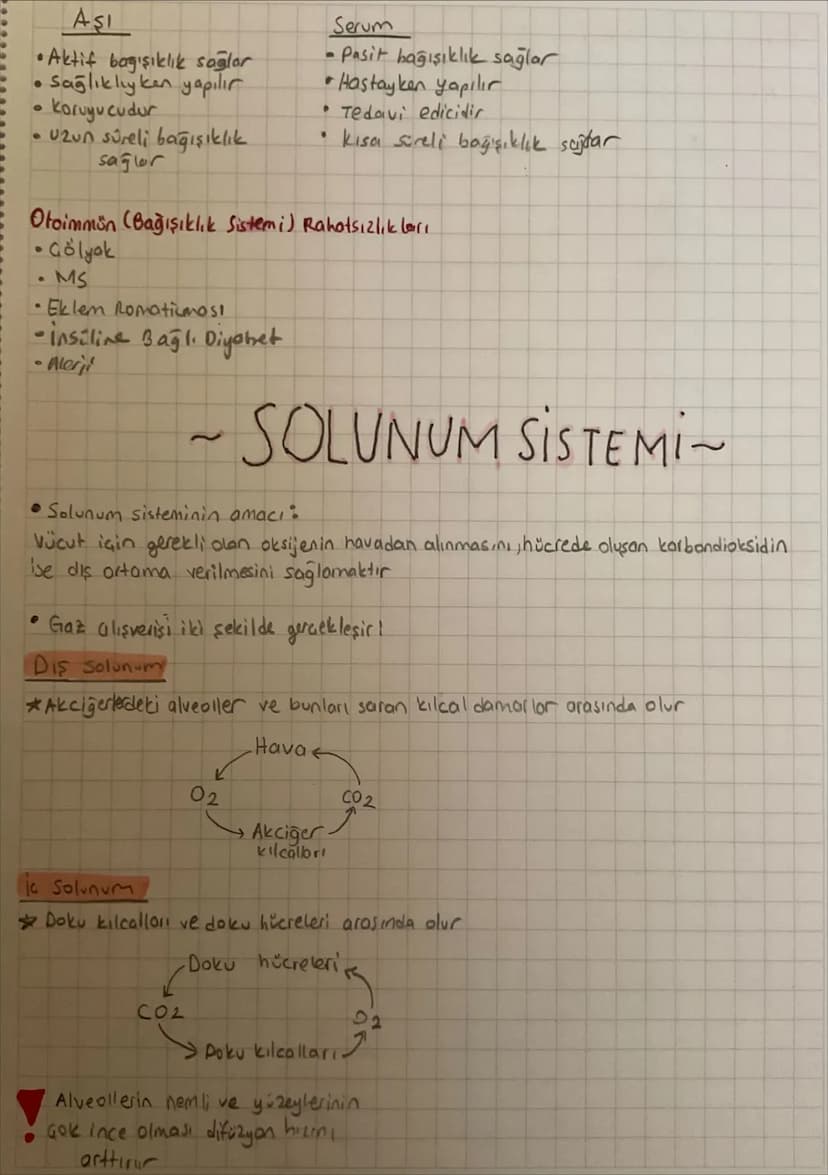 Aşı
• Aktif bağışıklık sağlar
• Sağlıklıyken yapılır
• Koruyucudur
• Uzun süreli bağışıklık
sağlar
Serum
• Pasif bağışıklık sağlar
• Hastayken yapılır
• Tedavi edicidir
• Kısa süreli bağışıklık sağlar
Otoimmün (Bağışıklık Sistemi) Rahatsızlıkları
• Çölyak
• MS
• Eklem Romatizması
• İnsüline Bağlı Diyabet
• Alerji
~ SOLUNUM SİSTEMİ ~
• Solunum sisteminin amacı:
Vücut için gerekli olan oksijenin havadan alınmasını, hücrede oluşan karbondioksidin
ise dış ortama verilmesini sağlamaktır
• Gaz alışverişi iki şekilde gerçekleşir!
Dış Solunum
* Akciğerlerdeki alveoller ve bunları saran kılcal damarlar arasında olur
Hava
O2 CO2
Akciğer
kılcalları
İç Solunum
* Doku kılcalları ve doku hücreleri arasında olur
Doku hücreleri
CO2 O2
Doku kılcalları
! Alveollerin nemli ve yüzeylerinin
çok ince olması difüzyon hızını
arttırır